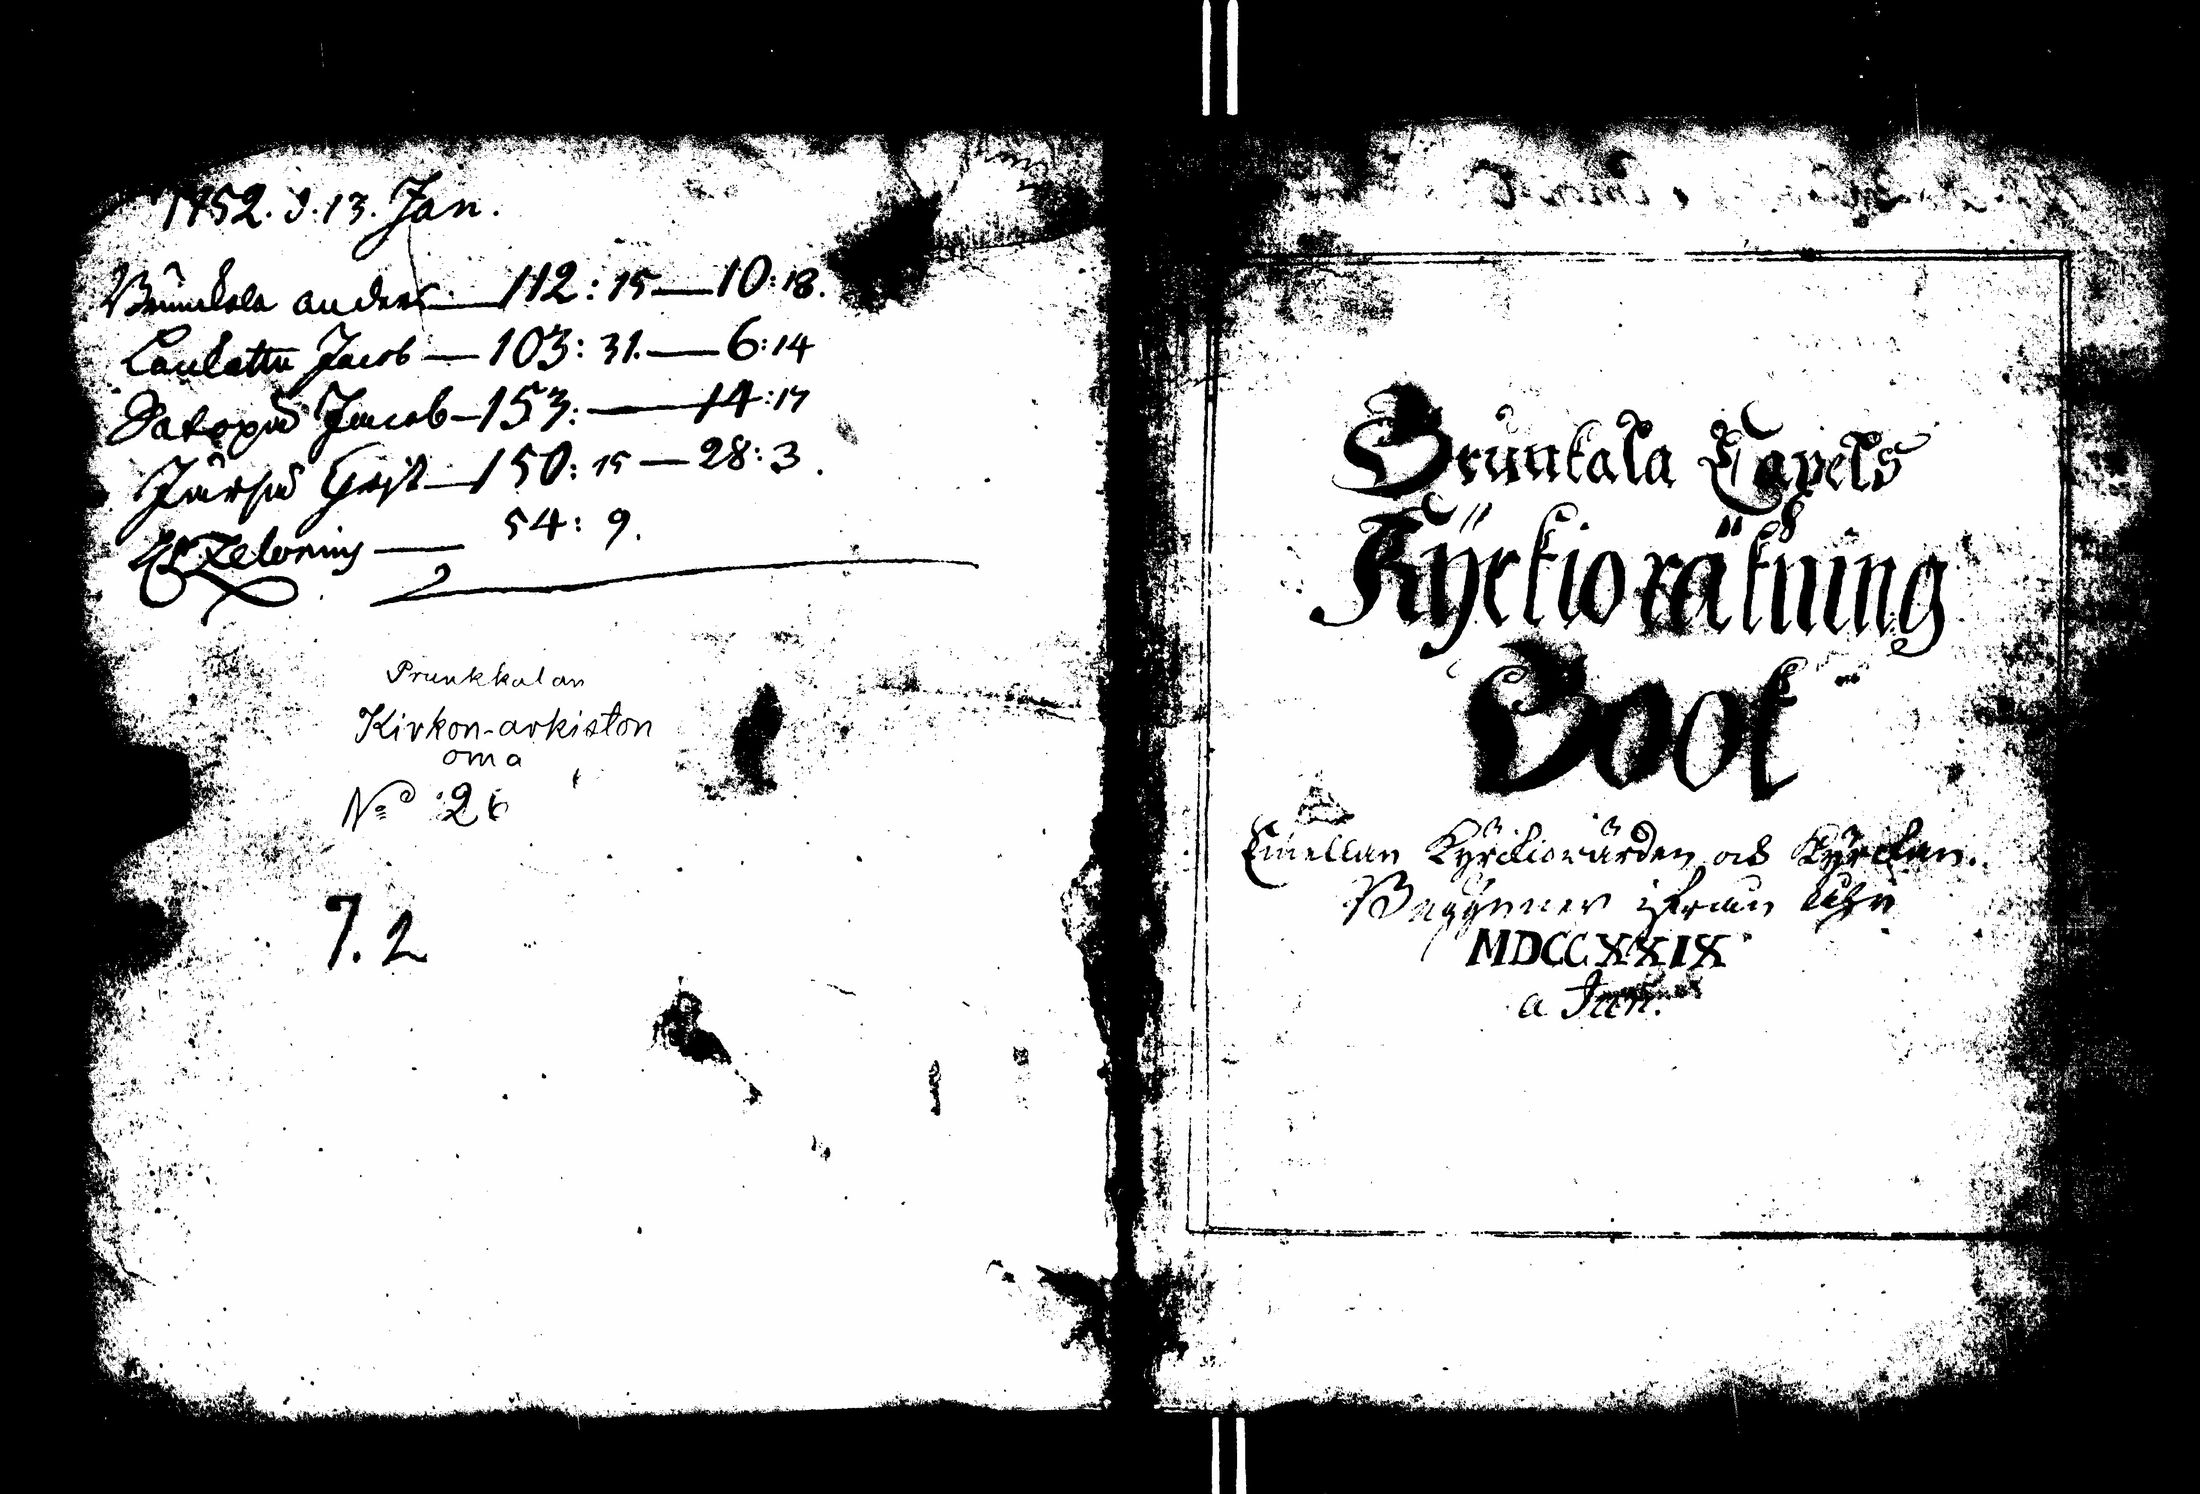 1752. d. 13. Jan.
Brunkala anders — 112: 15 — 10: 18.
Laukattu Jacob — 103: 31. — 6: 14
Jacob — 153: — 14: 17
150: 15 — 28: 3.
Zelonius — 54: 9.
Prunkkalan
Kirkon-arkiston
oma
No 26
7. 2
Brunkala Capels
Kÿrkioräkning
Book
Emellan Kyrckiowärden och Kyrckan.
Begynner ifrån åhr
MDCCXXIX
a